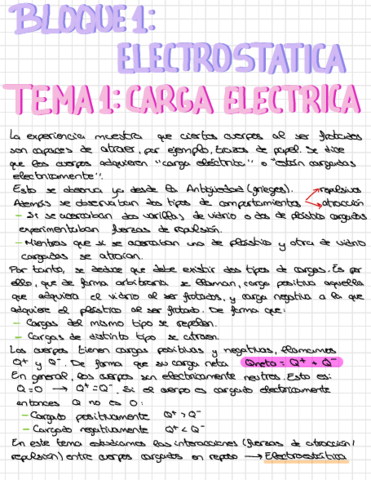 BLOQUE 1:
ELECTROSTATICA
TEMA 1: CARGA ELECTRICA
La experiencia muestra que ciertos cuerpos al ser frotados
son capaces de atraer, por ejemplo, trozos de papel. Se dice
que los cuerpos adquieren "carga eléctrica" o "están cargados
electricamente".
Esto se observa ya desde la Antigüedad (griegos).
repulsivo
Además se observaban dos tipos de comportamientos
atracción
- Si se acercaban dos varillas de vidrio o dos de plástico cargadas
experimentaban fuerzas de repulsión.
- Mientras que si se acercaban una de plástico y otra de vidrio
cargadas se atraían.
Por tanto, se deduce que debe existir dos tipos de cargas. Es por
ello, que de forma arbitraria se llaman, carga positiva aquella
que adquiera el vidrio al ser frotados, y carga negativa a la que
adquiere el plástico al ser frotado. De forma que:
- Cargas del mismo tipo se repelen.
- Cargas de distinto tipo se atraen.
Los cuerpos tienen cargas positivas y negativas, llamamos
Q⁺ y Q⁻. De forma que su carga neta Qneta = Q⁺ + Q⁻
En general, los cuerpos son electricamente neutros. Esto es:
Q=0 → Q⁺=Q⁻. Si el cuerpo es cargado electricamente
entonces Q no es 0:
- Cargado positivamente Q⁺>Q⁻
- Cargado negativamente Q⁺<Q⁻
En este tema estudiamos las interacciones (fuerzas de atracción/
repulsión) entre cuerpos cargados en reposo → Electrostática